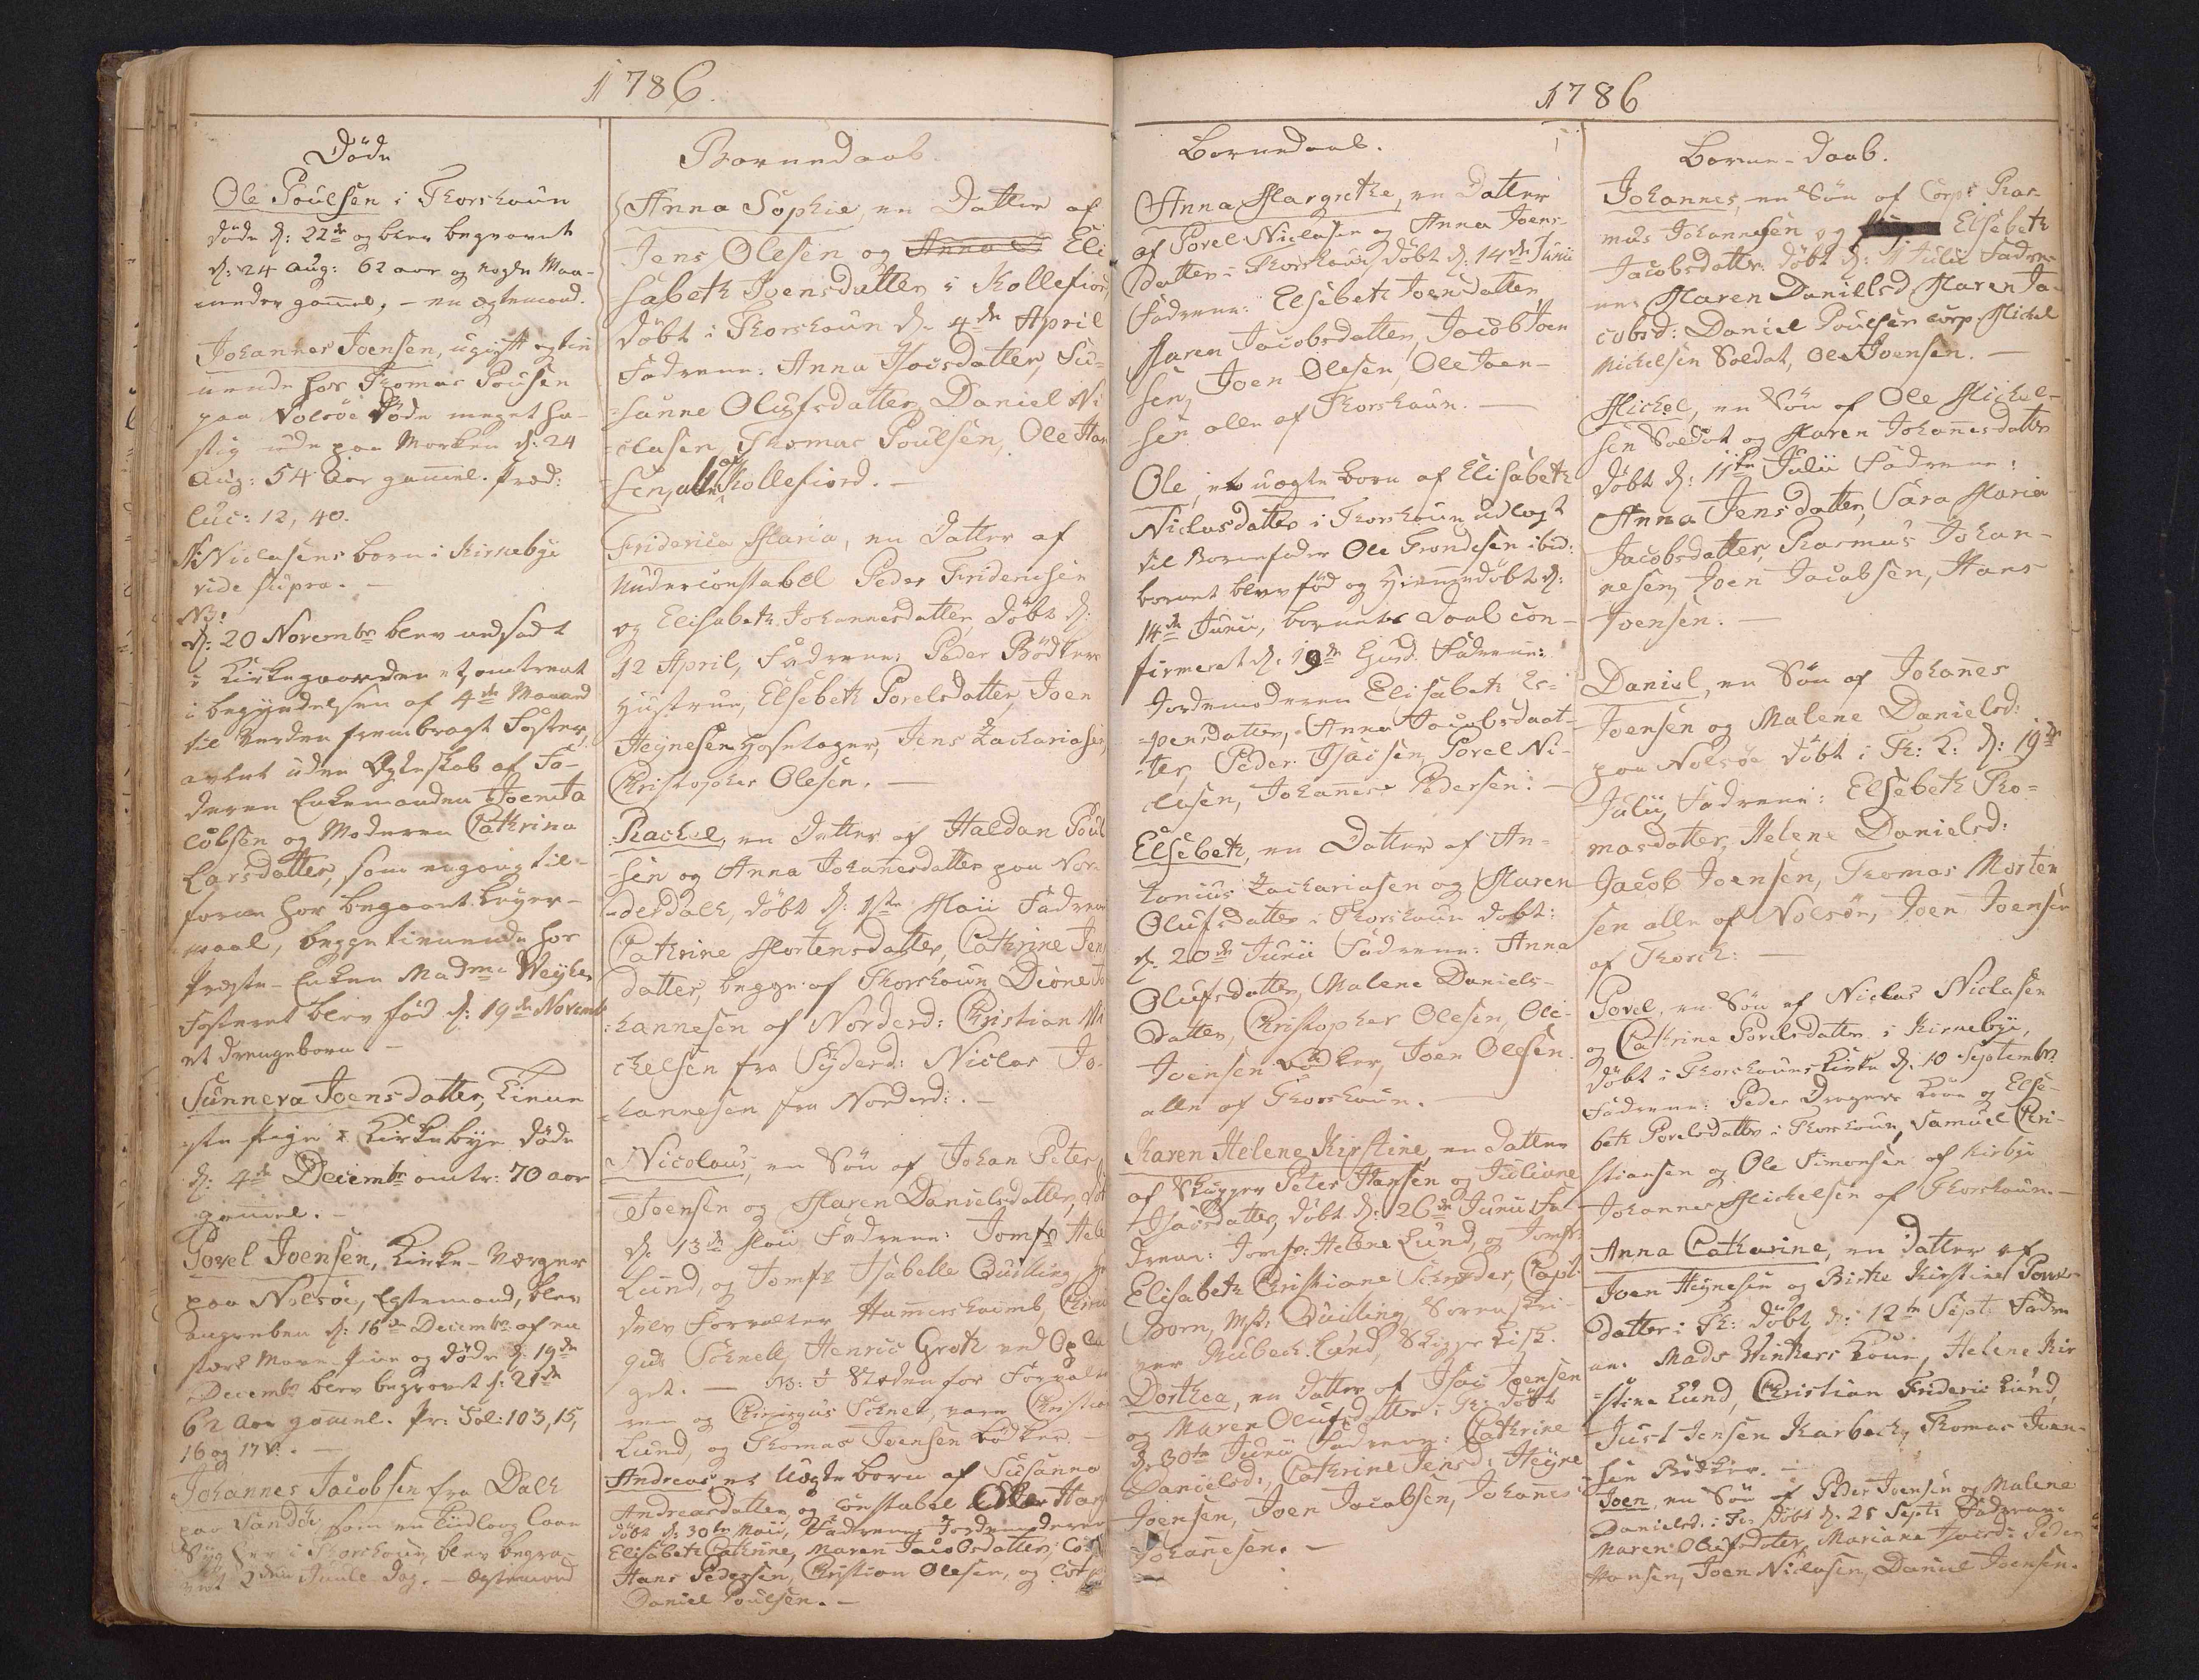 1786.
Döde
Ole Poulsen i Thorshaun
döde d: 22de og blev begravet
d: 24 Aug: 62 aar og nogle Maa-
neder gamel, - en ægtemand.
Johannes Joensen, ugift og tie
nende hos Thomas Pousen
paa Nolsöe döde meget ha-
stig ude paa Marken d: 24
Aug: 54 Aar gamel. præd:
Luc: 12, 40.
N: Niclasens barn i Kirkebye
vide supra. -
NB:
d: 20 Novembr blev nedsadt
i Kirkegaarden et omtrent
i begyndelsen af 4de Maaned
til Verden frembragt Foster,
avlet uden Ægteskab af Fa-
deren Enkemanden Joen Ja
cobsen og Moderen Cathrina
Larsdatter, som engang til-
foren har begaaet Leyer-
maal, begge tienende hos
Præste-Enken Madme Weyhe
Fosteret blev fød d: 19de Novemb
et drengebarn. -
Sunneva Joensdatter, Tienne
ste Pige i Kirkebye döde
d: 4de Decembr omtr: 70 aar
gamel. -
Povel Joensen, Kirke-Værger
paa Nolsöe, Egtemand, blev
angreben d: 16de Decembr af en
stærk Mave Pine og döde d: 19de
Decembr blev begravet d: 21de
62 Aar gamel. Pr: Sal: 103, 15,
16 og 17 V. -
Johannes Jacobsen fra Dalh
paa Sandöe som en Lindlaug Laae
Syg her i Thorshaun blev begra-
vet 2den Juule Dag. - Egtemand
Barnedaab.
Anna Sophie, en Datter af
Jens Olesen og Anna Eli
sabeth Joensdatter i Kollefiord,
döbt i Thorshaun d. 4de April
Fadrene: Anna Isacsdatter, Su-
sanne Olufsdatter, Daniel Ni
clasen, Thomas Poulsen, Ole Han
sen, alle af Kollefiord. -
Friderica Maria, en Datter af
Underconstabel Peder Fridericsen
og Elisabeth Johannesdatter, döbt d:
12 April, Fadrene: Peder Bödkers
Hustrue, Elsebeth Povelsdatter, Joen
Heynesen Hosetager, Jens Zachariasen,
Christopher Olesen. -
Rachel, en Datter af Haldan Poul
sen og Anna Johanesdatter paa Nor-
derdalh, döbt d: 1ste Maii Fadrene
Cathrine Mortensdatter, Cathrine Jens
datter, begge af Thorshaun, Dione Jo
hannesen af Norderd: Christian Mi
chelsen fra Syderd: Niclas Jo-
hannesen fra Norderd: -
Nicolaus, en Sön af Johan Peter
Joensen og Maren Danielsdatter, döb
d: 13de Maii Fadrene: Jomfr Hele
Lund, og Jomfr Isabelle Quilling,
delv Forvalter Hammershaimb, Chirur
gus Schnell, Henric Groth ved Opla
get. - NB: I Steden for Forvalte
ren og Chirurgus Schnel, vare Christian
Lund, og Thomas Joensen bödker. -
Andreas, et Uægte barn af Susanna
Andreasdatter og Constabel Ole Hans
döbt d: 30te Maii, Fadrene: Jordemoderen
Elisabeth Cathrine, Maren Jacobsdatter, Co
Hans Pedersen, Christian Olesen, og Cst
Daniel Poulsen. -
1786
Barnedaab.
Anna Margrethe, en Datter
af Povel Niclasen og Anna Joens-
datter i Thorshaun döbt d: 14de Junii
Fadrene: Elsebeth Joensdatter,
Maren Jacobsdatter, Jacob Joen
sen, Joen Olesen, Ole Joen-
sen alle af Thorshaun. -
Ole, et uægte barn af Elisabeth
Niclasdatter i Thorshaun, udlagt
til Barnefader Ole Trondesen ibid:
barnet blev fød og Hiemmedöbt d:
14de Junii, barnets daab con-
firmeret d: 19de Ejusd. Fadrene:
Jordemoderen Elisabeth Es-
pensdatter, Anna Jacobsdaat-
ter, Peder Isacsen, Povel Ni-
clasen, Johannes Pedersen: -
Elsebeth, en Datter af An-
tonius Zachariasen og Maren
Olufsdatter i Thorshaun döbt:
d. 20de Junii Fadrene: Anna
Olufsdatter, Malene Daniels-
datter, Christopher Olesen, Ole
Joensen bödker, Joen Olesen
alle af Thorshaun. -
Karen Helene Kirstine, en datter
af Skipper Peter Hansen og Juliane
Isacsdatter, döbt d: 26de Junii Fa
drene: Jomfr: Helene Lund, og Jomfr
Elisabeth Christiane Schrøder, Capt:
Born, Mr: Quilling, Sorenskri-
ver Mubech Lund, Skipper Lisk.
Dorthea, en datter af Isac Joensen
og Maren Olufsdatter i Th: döbt
d: 30te Junii Fadrene: Cathrine
Danielsd:, Cathrine Jensd: Heyne
Joensen, Joen Jacobsen, Johanes
Johanesen. -
1786
Barne-Daab.
Johannes, en Sön af Corpr Ras-
mus Johannesen og Elsebeth
Jacobsdatter. döbt d: 1 Julii Fadre-
ne: Maren Danielsd, Maren Ja-
cobsd: Daniel Poulsen corp. Michel
Michelsen Soldat, Ole Joensen. -
Michel, en Sön af Ole Michel-
sen Soldat og Maren Johanesdatter
döbt d: 11te Julii Fadrene:
Anna Jensdatter, Sara Maria
Jacobsdatter, Rasmus Johan-
nesen, Joen Jacobsen, Hans
Joensen. -
Daniel, en Sön af Johanes
Joensen og Malene Danielsd:
paa Nolsöe döbt i Th: K: d: 19de
Julii, Fadrene: Elsebeth Tho-
masdatter, Helene Danielsd:
Jacob Joensen, Thomas Morten
sen alle af Nolsöe, Joen Joensen
af Thorsh: -
Povel, en Sön af Niclas Niclasen
og Cathrine Povelsdatter i Kirkebye,
döbt i Thorshauns Kirke d. 10 Septembr.
Fadrene: Peder Dragers Kone og Else-
beth Povelsdatter i Thorshaun, Samuel Chri-
stiansen og Ole Simonsen af Kirbye
Johannes Michelsen af Thorshaun. -
Anna Catharine, en datter af
Joen Heynesen og Birthe Kirstine Povels
datter i Th: döbt d: 12te Sept: Fadre
ne: Mads Winthers Kone, Helene Kir
stine Lund, Christian Frideric Lund,
Just Jensen Karbech, Thomas Joen-
sen Bödker. -
Joen, en Sön af Peder Joensen og Malene
Danielsd: i Th: döbt d. 25 Sept: Fadrene
Maren Olufsdater, Mariane Isacsd: Peder
Hansen, Joen Niclasen, Daniel Joensen.